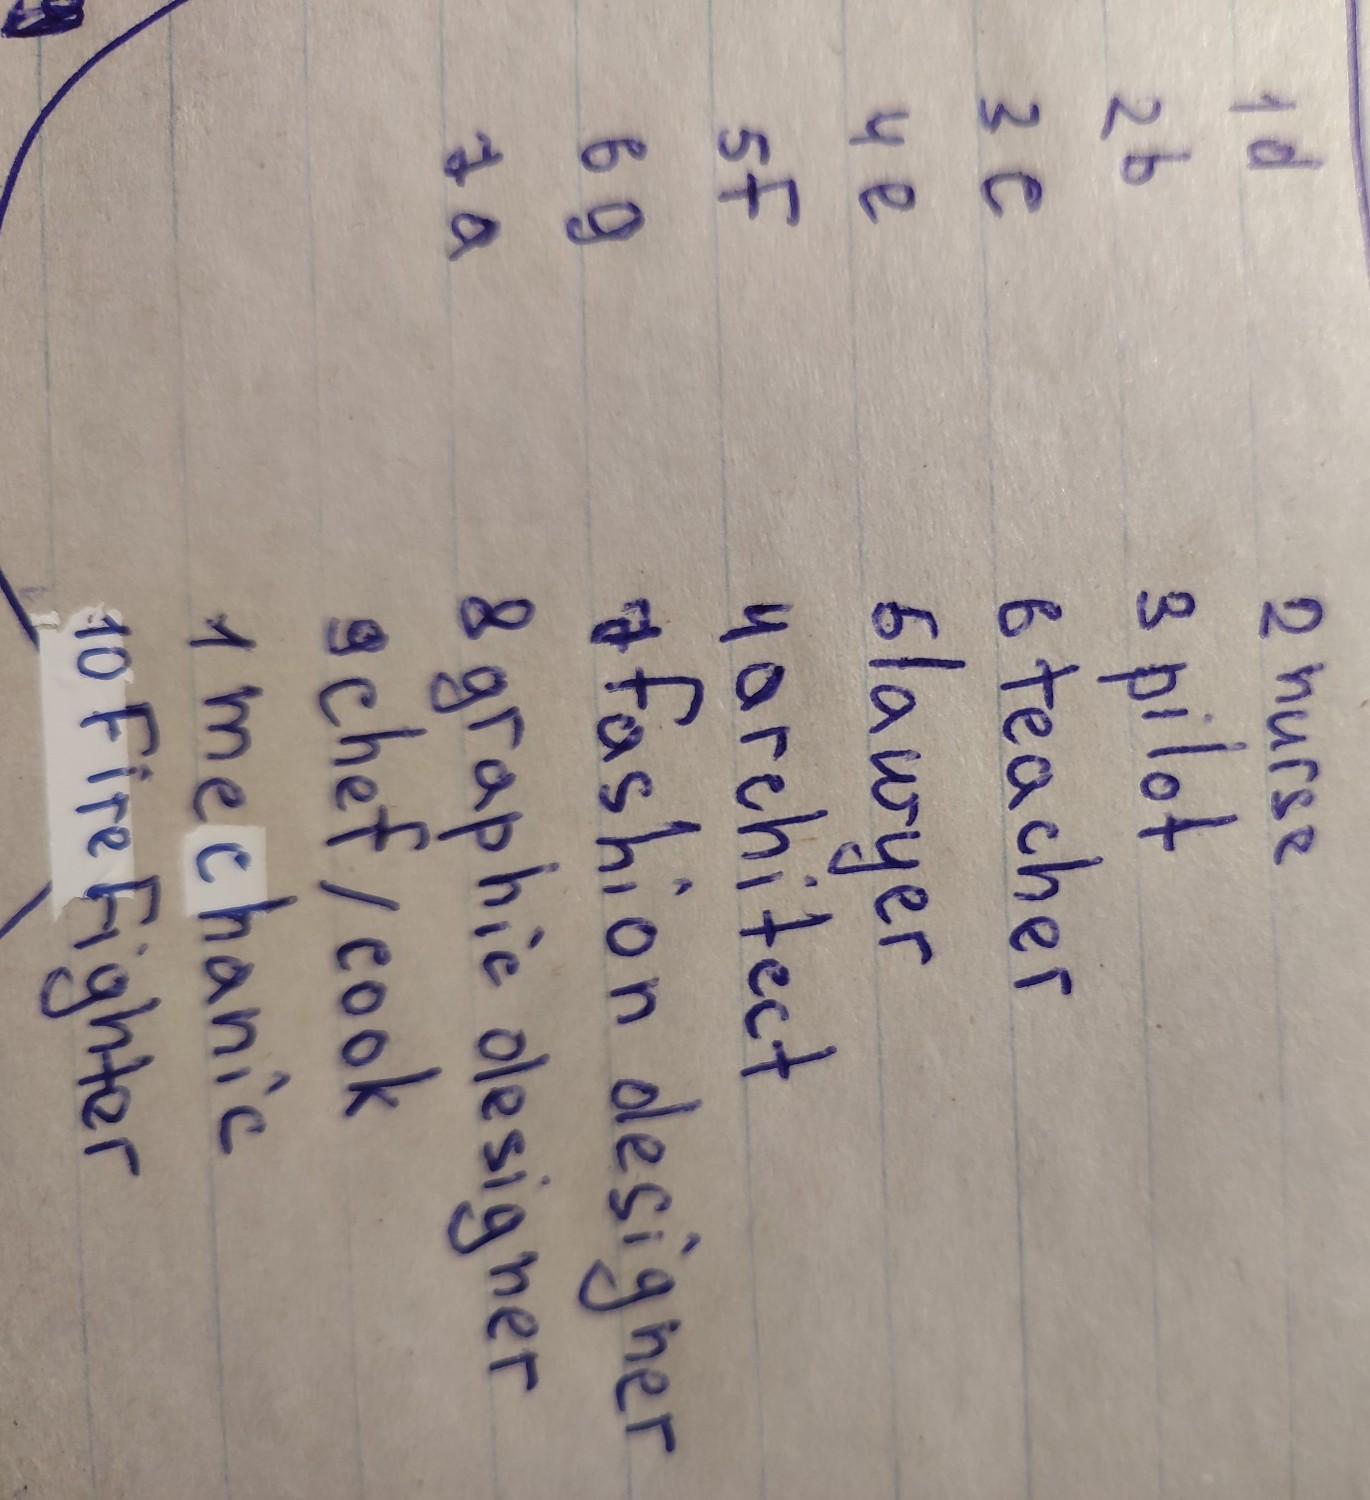 1d
2b
3c
4e
5f
6g
7a
2 nurse
3 pilot
6 teacher
5 lawyer
4 architect
7 fashion designer
8 graphic designer
9 chef / cook
1 mechanic
10 Firefighter